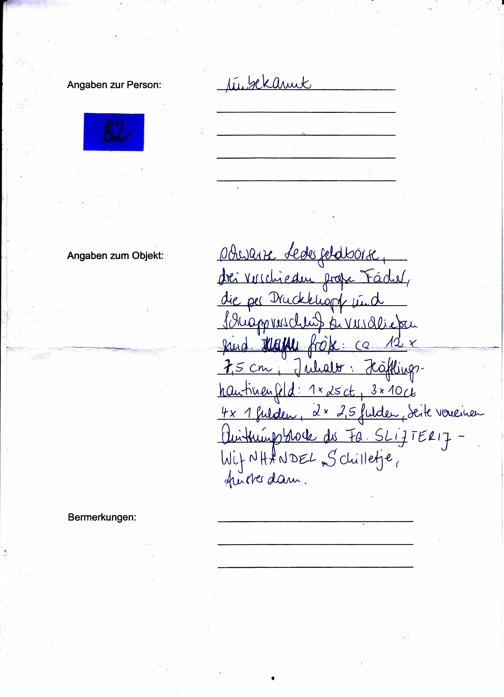 Angaben zur Person:
unbekannt
82
Angaben zum Objekt:
schwarze Ledergeldbörse,
drei verschieden große Fächer,
die per Druckknopf und
Schnappverschluß zu verschließen
sind. Größe: ca. 12 x
7,5 cm, Inhalt: Häftlings-
kantinengeld: 1 x 25 ct, 3 x 10 ct
4 x 1 Gulden, 2 x 2,5 Gulden, Seite von einem
Quittungsblock der Fa. SLIJTERIJ -
WIJNHANDEL Schilletje,
Amsterdam.
Bermerkungen: